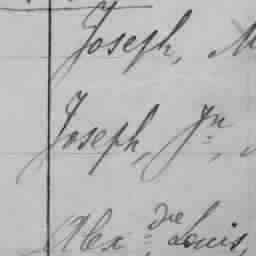 Joseph, M
Joseph, Jn,
Alexdre Louis,